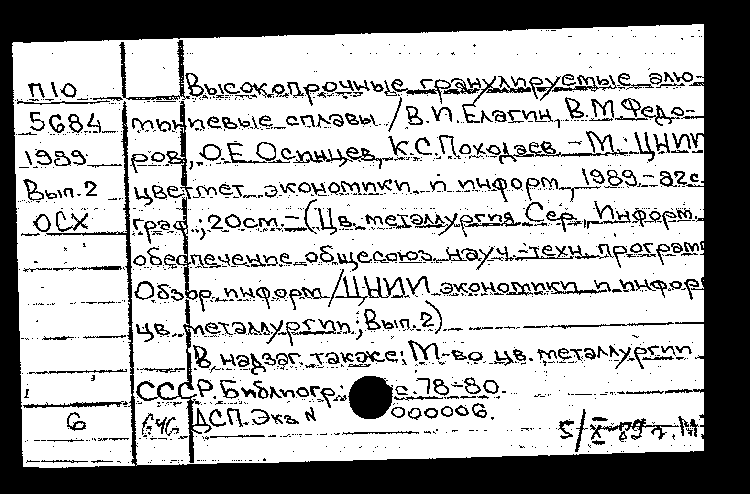 П10 Высокопрочные гранулируемые алю-
5684 миниевые сплавы / В.И.Елагин, В.М.Федо-
1989 ров, О.Е.Осинцев, К.С.Походаев. – М.: ЦНИИ
Вып.2 цветмет экономики и информ, 1989.-82с.
ОСХ граф.; 20см.-(Цв. металлургия. Сер., Информ.
обеспечение общесоюз. науч.-техн. програм
Обзор. информ /ЦНИИ экономики и информ
цв. металлургии; Вып.2)
В надзаг. также: М-во цв. металлургии
СССР. Библиогр.: с.78-80.
6 646 ДСП. Экз N 000006.
5/X-89 г.